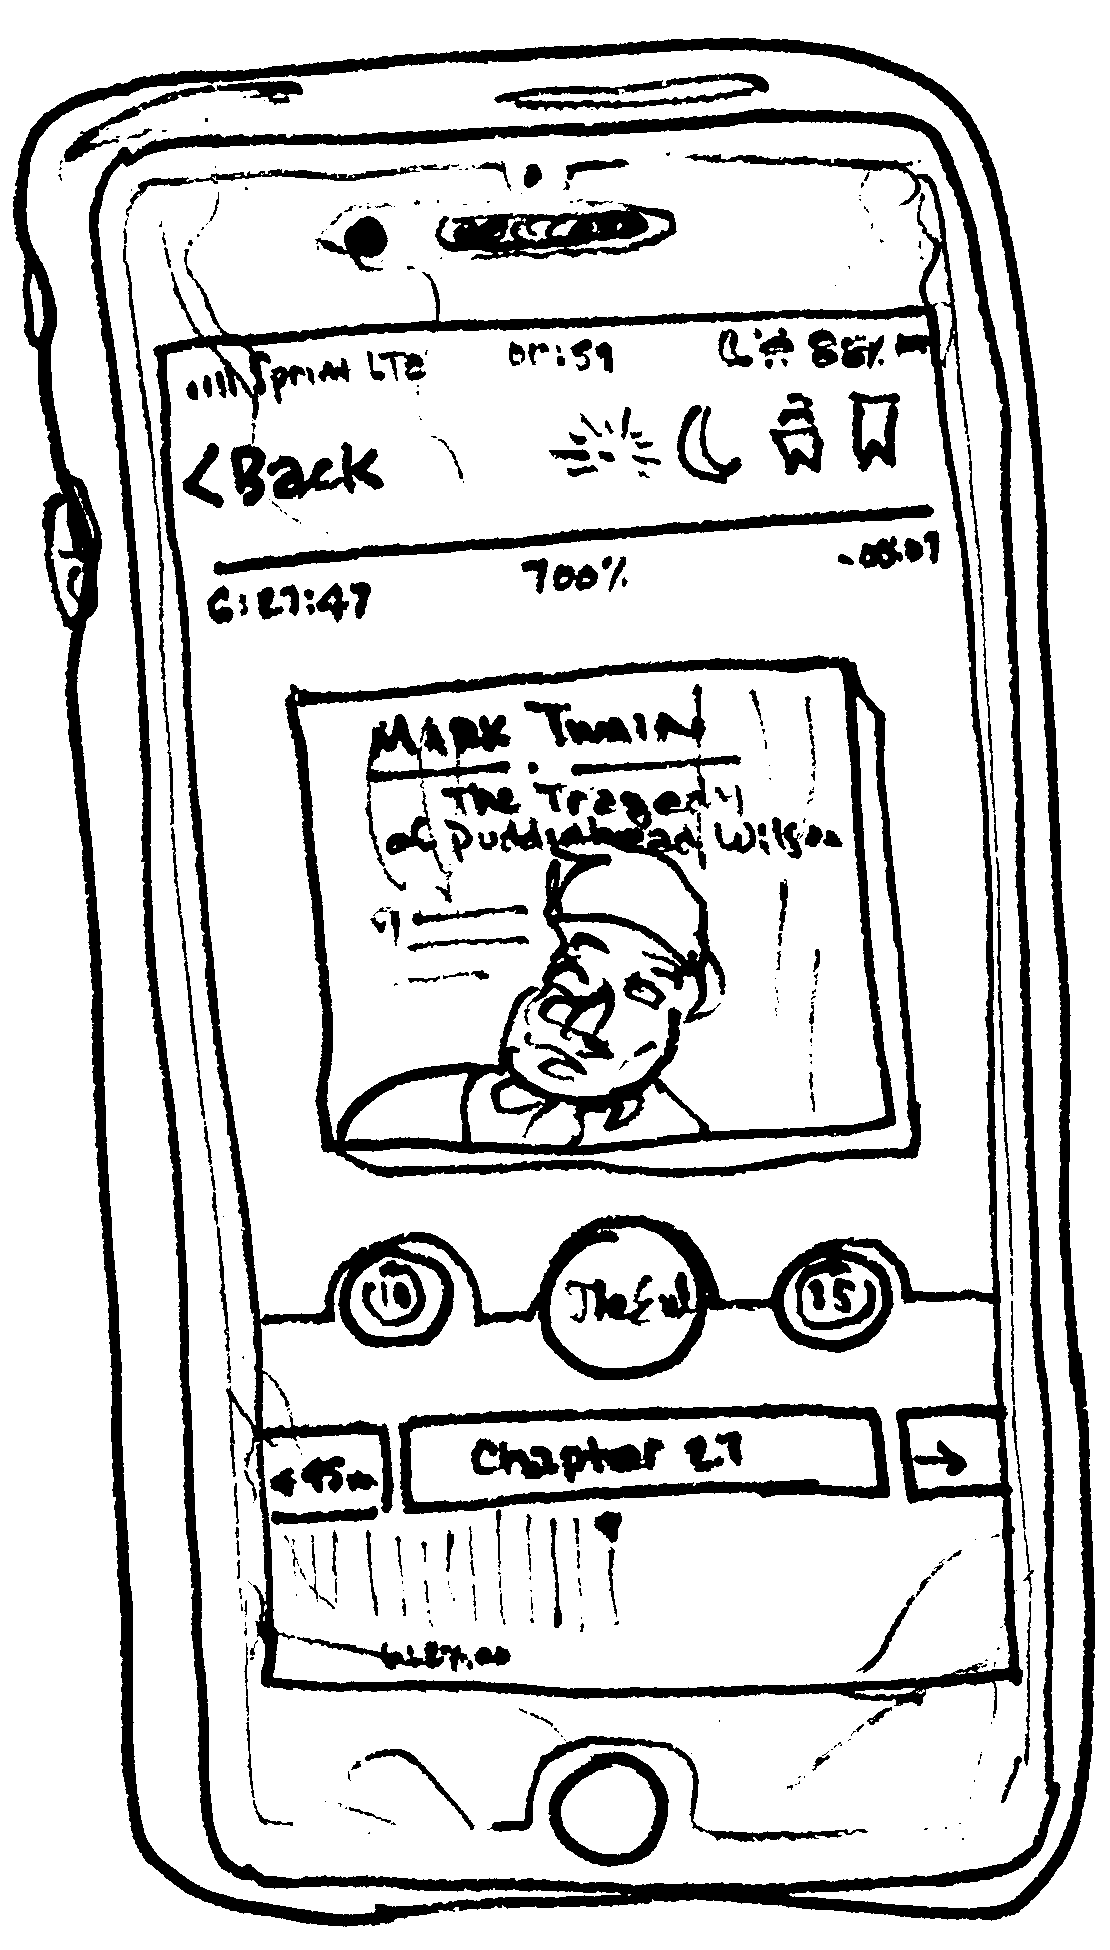 Sprint LTE
:59 88%
<Back
6:27:47 700% -00:01
MARK TWAIN
The Tragedy
of Puddinhead Wilson
10 The End 15
Chapter 27